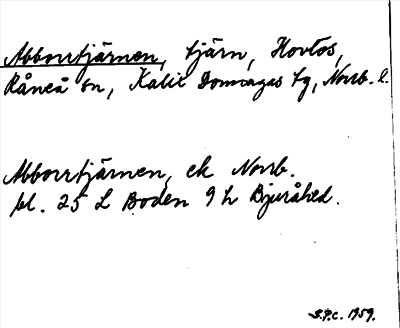 Abborrtjärnen, tjärn, Hovlös,
Råneå sn, Kalix Domsagas tg, Norrb. l.
Abborrtjärnen, ek Norrb.
bl. 25 L Boden 9 h Bjuråhed.
S.P.C. 1959.